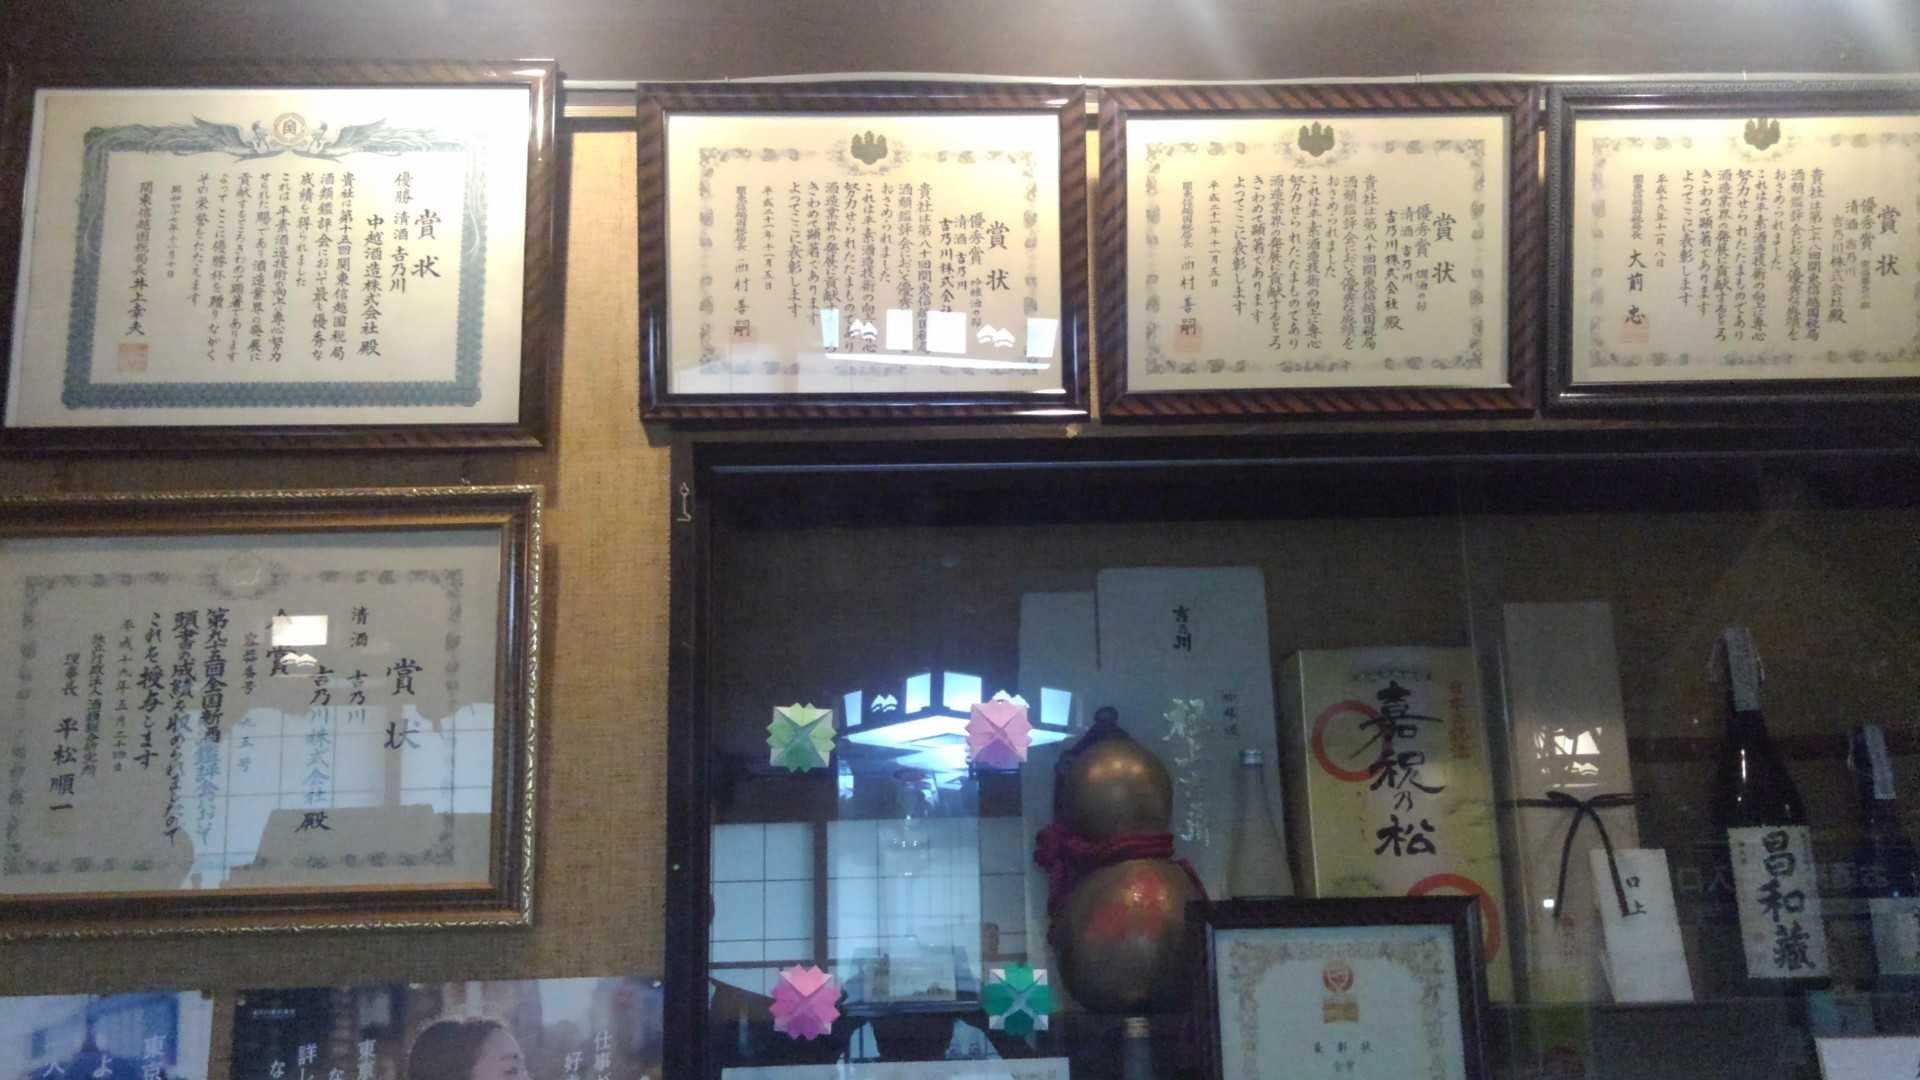 賞状
優勝 清酒 吉乃川
中越酒造株式会社 殿
貴社は第十五回関東信越国税局
酒類鑑評会において最も優秀な
成績を得られました
これは平素酒造技術の向上に専心努力
せられた賜であり酒造業界の発展に
貢献するところきわめて顕著であります
よってここに優勝杯を贈りながく
その栄誉をたたえます
昭和四十七年十一月十日
関東信越国税局長 井上幸夫
賞状
優秀賞 吟醸酒の部
清酒 吉乃川
吉乃川株式会社
貴社は第八十回関東信越国税局
酒類鑑評会において優秀な
おさめられました
これは平素酒造技術の向上に専心
努力せられたたまものであり
酒造業界の発展に貢献するところ
きわめて顕著であります
よってここに表彰します
平成二十一年十一月五日
関東信越国税局長 西村善嗣
賞状
優秀賞 燗酒の部
清酒 吉乃川
吉乃川株式会社 殿
貴社は第八十回関東信越国税局
酒類鑑評会において優秀な成績を
おさめられました
これは平素酒造技術の向上に専心
努力せられたたまものであり
酒造業界の発展に貢献するところ
きわめて顕著であります
よってここに表彰します
平成二十一年十一月五日
関東信越国税局長 西村善嗣
賞状
優秀賞
清酒 吉乃川
吉乃川株式会社 殿
貴社は第七十八回関東信越国税局
酒類鑑評会において優秀な成績を
おさめられました
これは平素酒造技術の向上に専心
努力せられたたまものであり
酒造業界の発展に貢献するところ
きわめて顕著であります
よってここに表彰します
平成十九年十一月八日
関東信越国税局長 大前忠
賞状
清酒 吉乃川
吉乃川株式会社 殿
賞
容器番号 九五号
第九十五回全国新酒鑑評会において
頭書の成績を収められましたので
これを授与します
平成十九年五月二十四日
独立行政法人酒類総合研究所
理事長 平松順一
吉乃川
吟醸造
嘉祝乃松
口上
昌和蔵
表彰状
金賞
東京
よ
人
東京
な
詳し
な
仕事
好